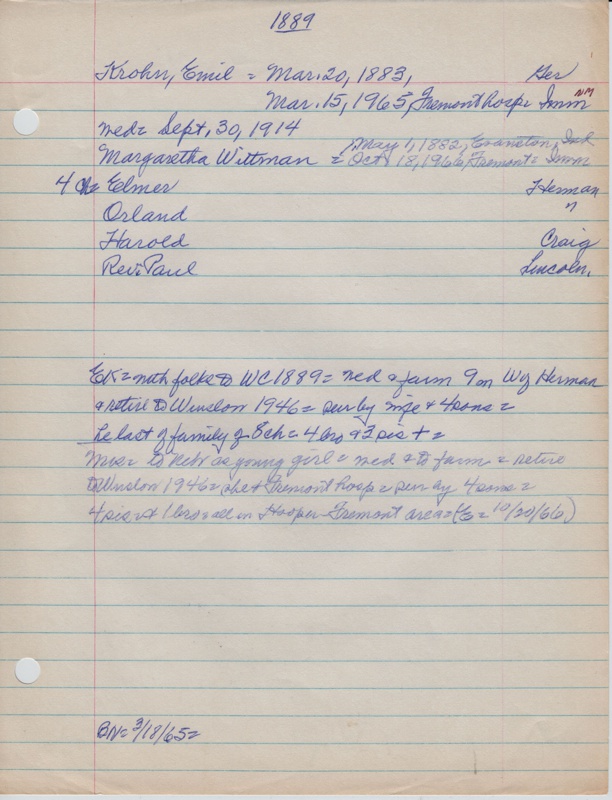 1889
Krohn, Emil = Mar. 20, 1883, Ger
Mar. 15, 1965, Fremont hosp = Imm NM
med = Sept, 30, 1914
Margaretha Wittman = May 1, 1882, Evaneton, Ind
Oct 18, 1966, Fremont = Imm
4 ch = Elmer Herman
Orland "
Harold Craig
Rev. Paul Lincoln.
EK = with folks to WC 1889 = med & farm 9 m W of Herman
& retire to Winslow 1946 = sur by wife & 4 sons =
he last of family of 8 ch = 4 bro & 3 sis + =
Mrs = to Nebr as young girl = med & to farm = retire
to Winslow 1946 = she + Fremont hosp = sur by 4 sons =
4 sis, & 1 bro = all in Hooper-Fremont area = ( = 10/20/66)
BN = 3/18/65 =